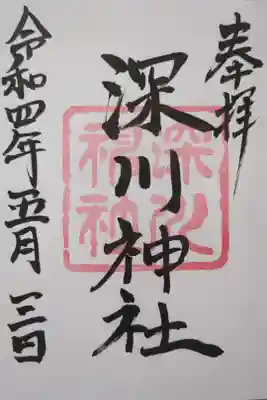 奉拝
深川神社
令和四年五月三日
深川
神社